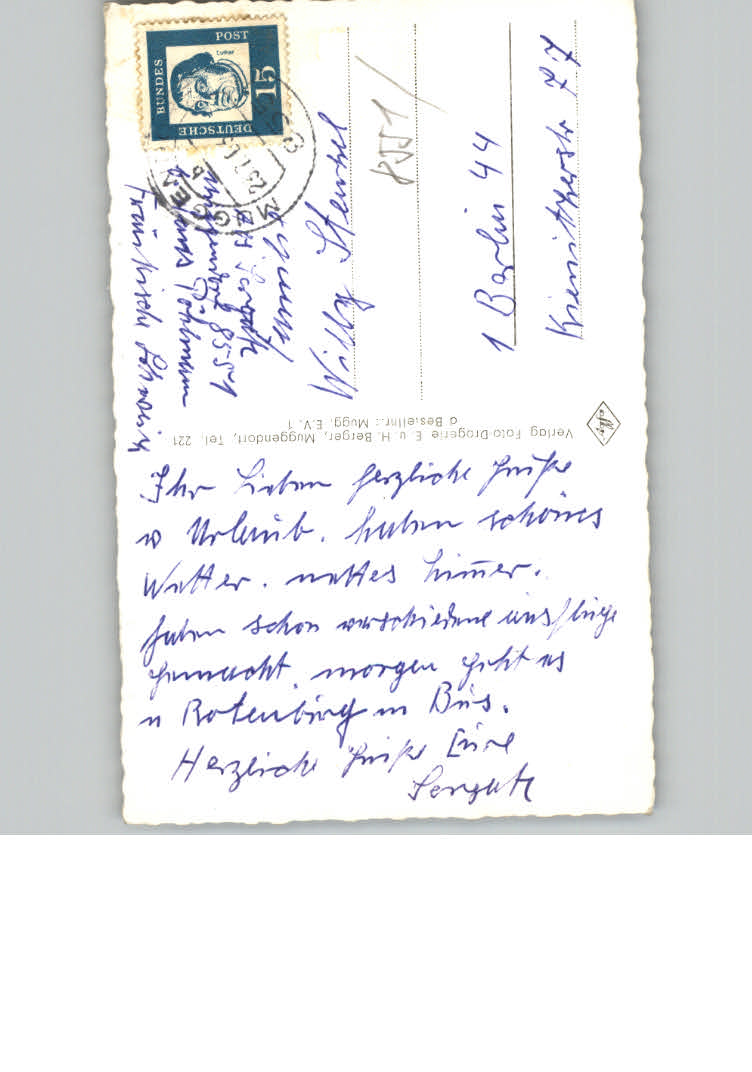 Ihr Lieben herzliche Grüße
v Urlaub. haben schönes
Wetter. nettes Zimmer.
haben schon verschiedene Ausflüge
gemacht. morgen geht es
n Rotenburg m Bus.
Herzliche Grüße Eure
Verlag Foto-Drogerie E. u. H. Berger, Muggendorf, Tel. 221
d Bestellnr.: Mugg. E.V. 1
Fränkische Schweiz
Hans
8551
Willy
1 Berlin 44
8551
DEUTSCHE
BUNDES
POST
15
Luther
MUGGEN